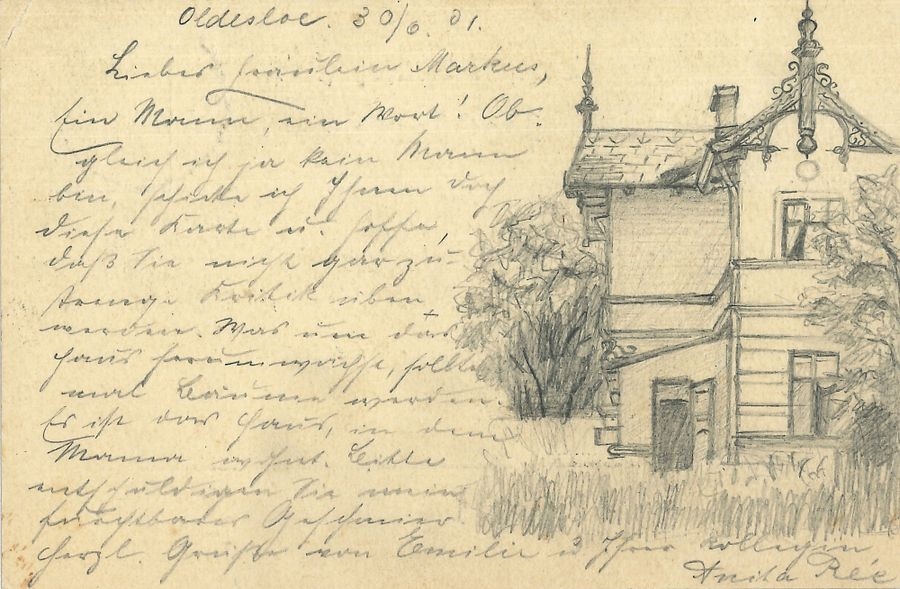 Oldesloe. 30/6. 01.
Liebes Fräulein Markus,
Ein Mann, ein Wort! Ob-
gleich ich ja kein Mann
bin, schicke ich Ihnen doch
diese Karte u. hoffe,
daß Sie nicht gar zu
strenge Kritik üben
werden. Was um das
Haus herumwächst, sollte
mal Bäume werden.
Es ist das Haus, in dem
Mama wohnt. Bitte
entschuldigen Sie mein
furchtbares Geschmier.
Herzl. Grüße von Emilie u Ihrer Kollegin
Anita Rée